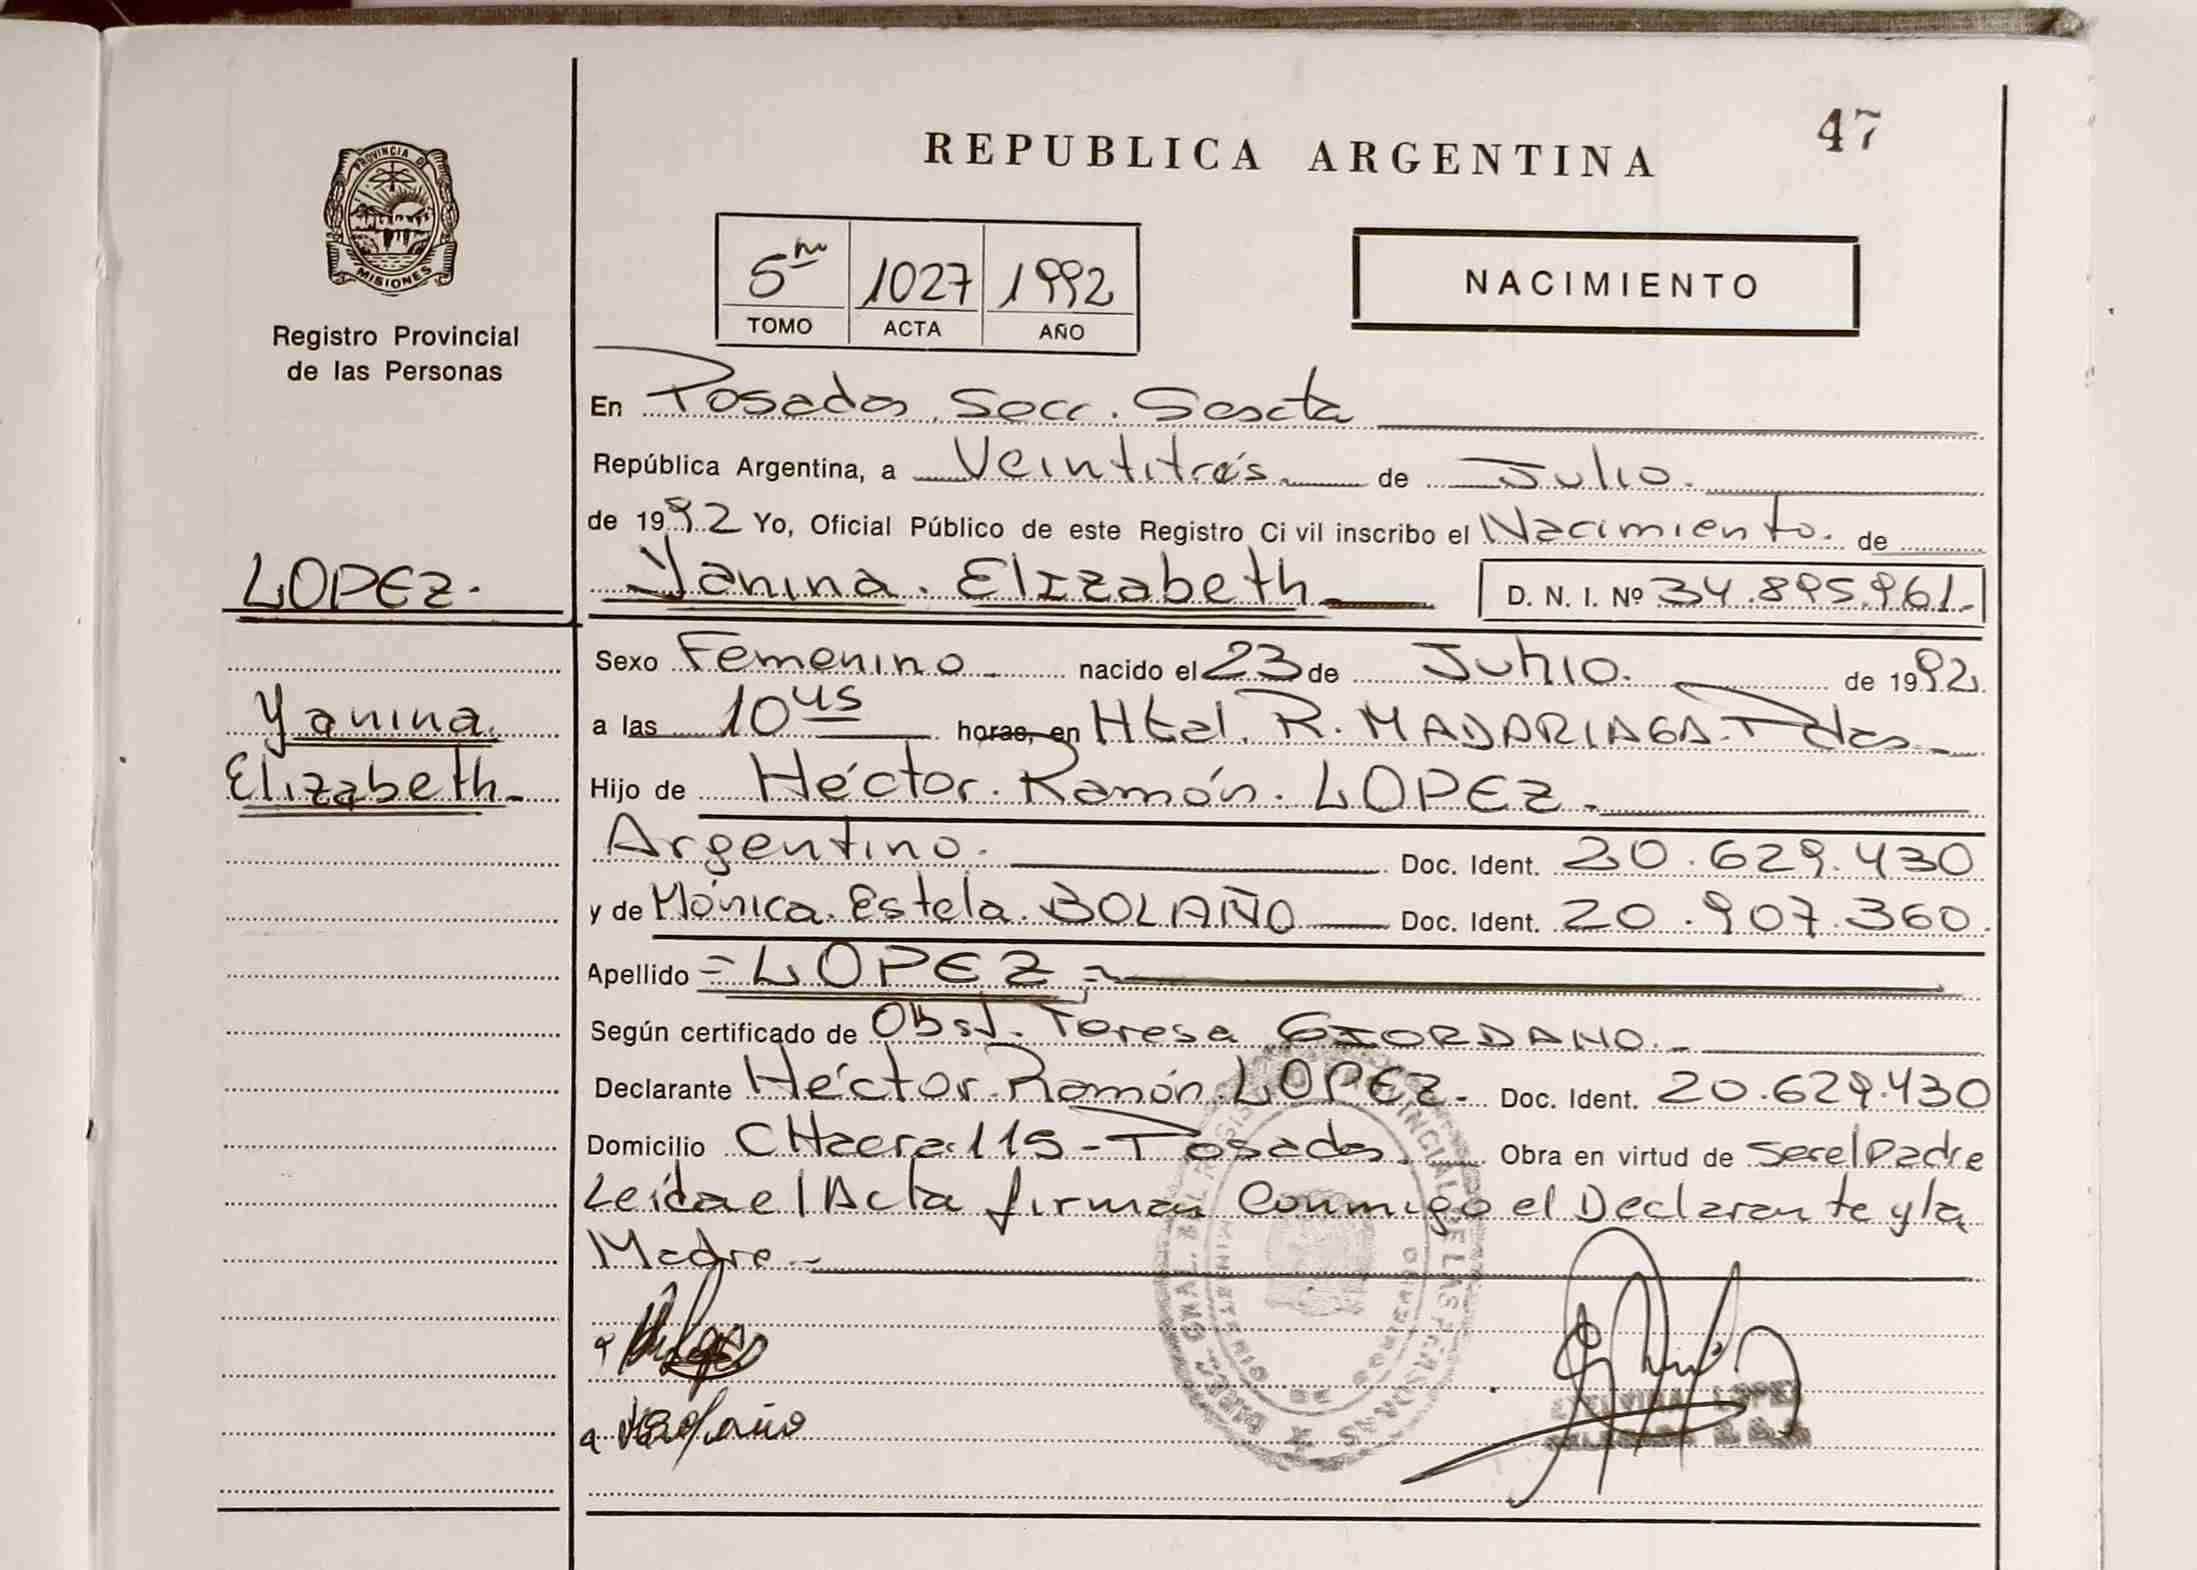 47
REPUBLICA ARGENTINA
PROVINCIA D
MISIONES
Registro Provincial
de las Personas
5to 1027 1992
TOMO ACTA AÑO
NACIMIENTO
En Posadas, Secc. Sexta
República Argentina, a Veintitrés de Julio.
de 1992 Yo, Oficial Público de este Registro Civil inscribo el Nacimiento. de
LOPEZ.
Yanina. Elizabeth D. N. I. Nº 34.895.961.
Sexo Femenino nacido el 23 de Junio. de 1992.
Yanina.
a las 10 horas, en Htal. R. MADARIAGA. Pdas
Elizabeth
Hijo de Héctor. Ramón. LOPEZ.
Argentino. Doc. Ident. 20.629.430
y de Mónica. Estela. BOLAÑO Doc. Ident. 20.907.360.
Apellido = LOPEZ =
Según certificado de Obst. Teresa GIORDANO.
Declarante Héctor. Ramón. LOPEZ. Doc. Ident. 20.629.430
Domicilio CHacra. 115 - Posadas. Obra en virtud de ser el Padre
Leída el Acta firman Conmigo el Declarante y la
Madre.
LOPEZ